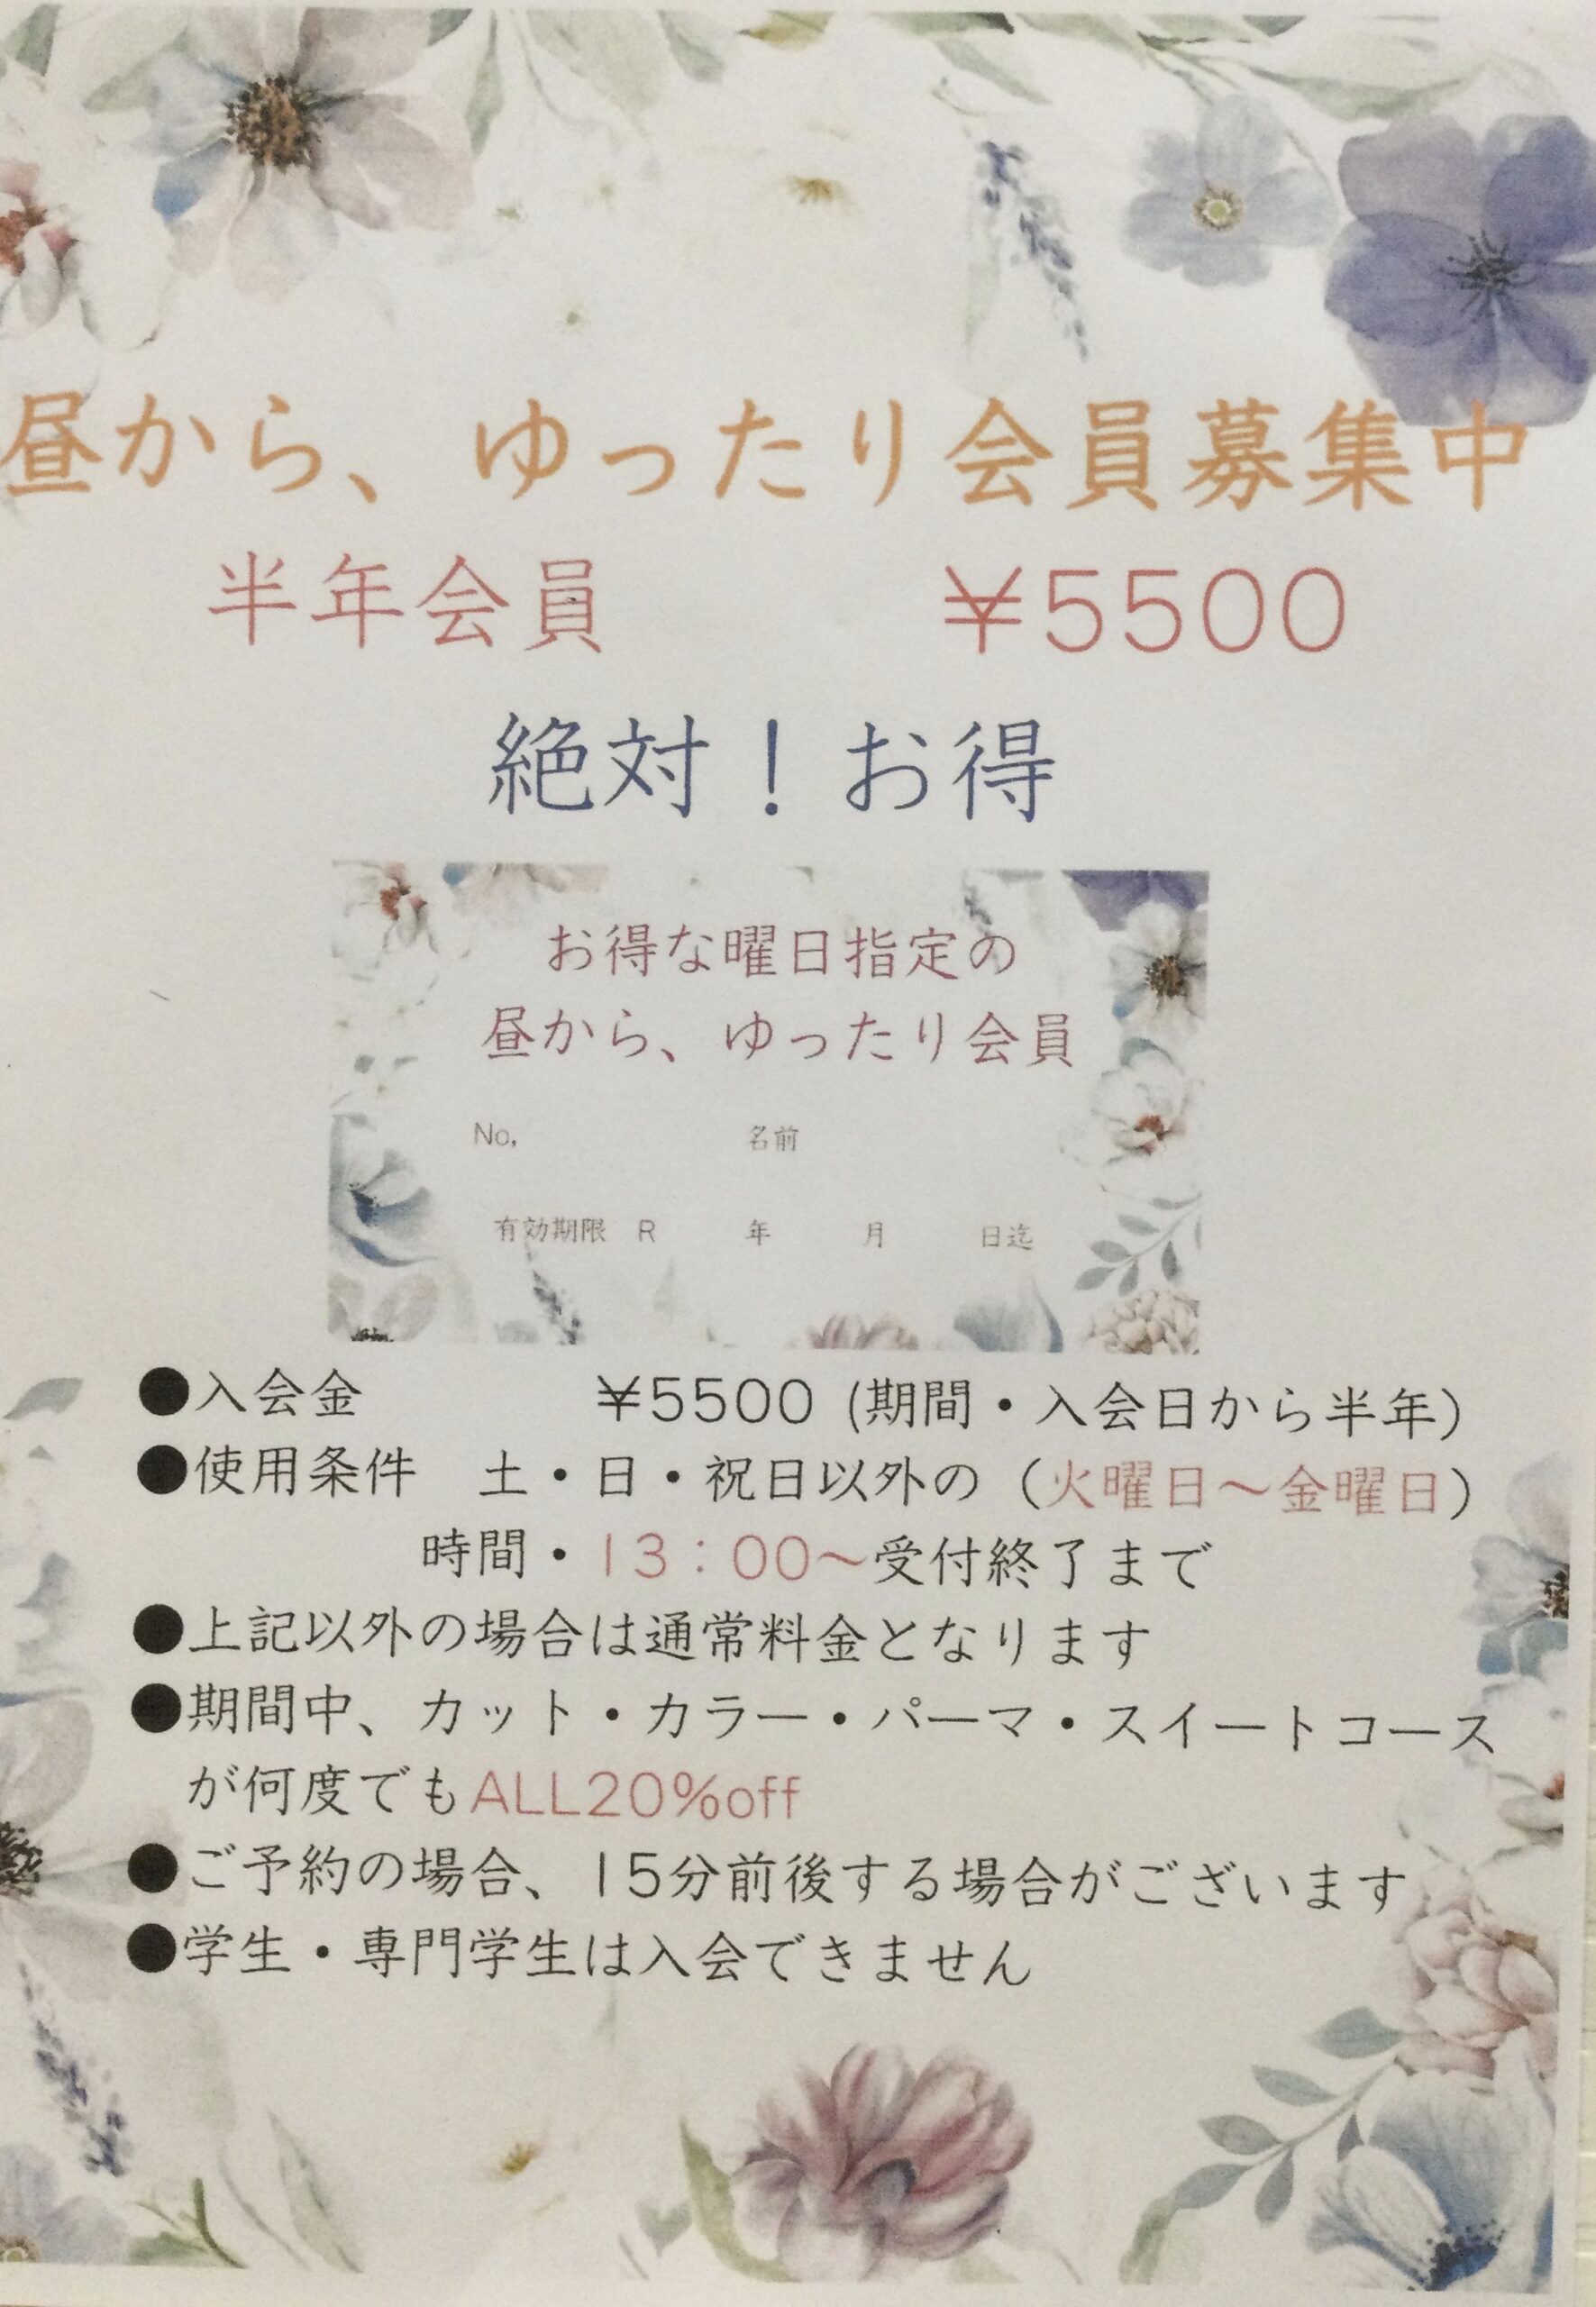 昼から、ゆったり会員募集中
半年会員　¥5500
絶対！お得
お得な曜日指定の
昼から、ゆったり会員
No,　名前
有効期限　R　年　月　日迄
●入会金　¥5500（期間・入会日から半年）
●使用条件　土・日・祝日以外の（火曜日～金曜日）
時間・13：00～受付終了まで
●上記以外の場合は通常料金となります
●期間中、カット・カラー・パーマ・スイートコース
が何度でもALL20%off
●ご予約の場合、15分前後する場合がございます
●学生・専門学生は入会できません